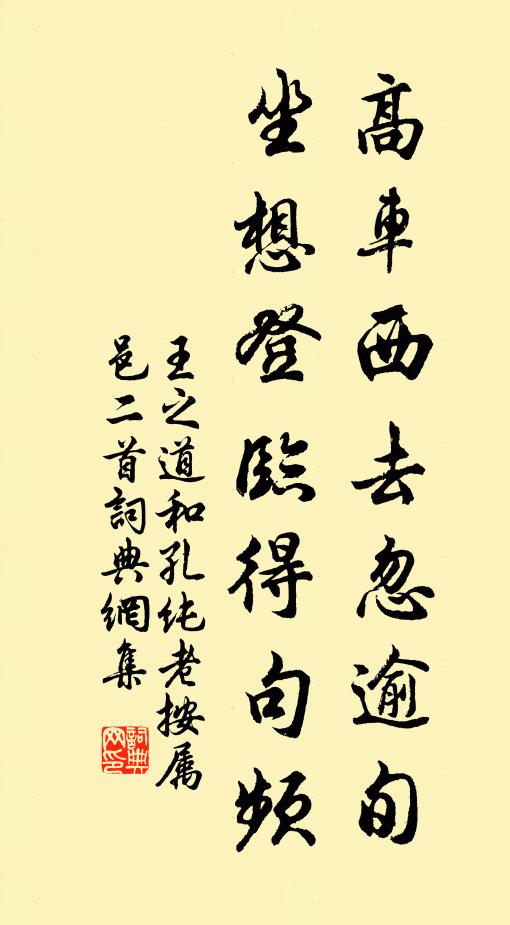 高車西去忽逾旬
坐想登臨得句頻
王之道和孔纯老按属
邑二首詞典網集
詞典網印